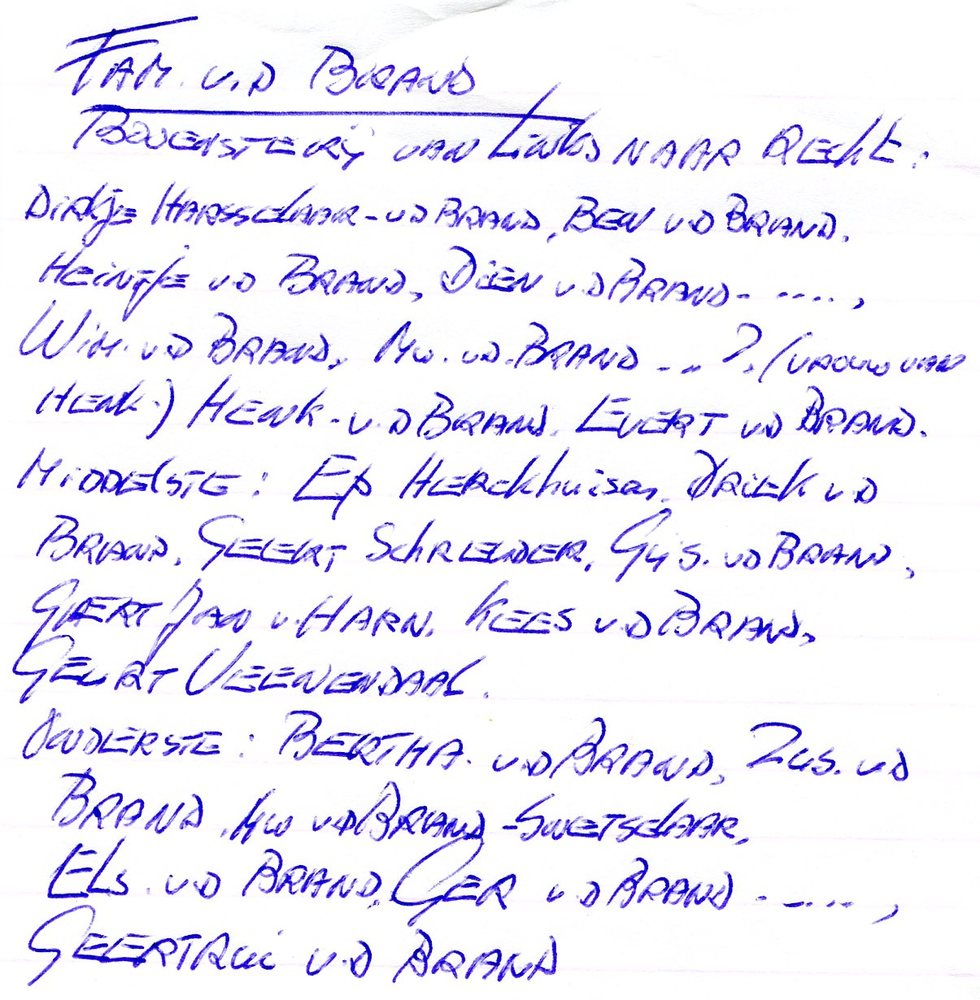 FAM. v.D BRAND
BOVENSTE RIJ VAN LINKS NAAR RECHT:
DIRKJE HASSELAAR-vD BRAND, BEN vD BRAND.
HEINTJE vD BRAND, DIEN vD BRAND-....,
WIM. v.D BRAND, MW. vD. BRAND ...?. (VROUW VAN
HENK.) HENK. v.D BRAND. EVERT vD BRAND.
MIDDELSTE: EP HERCKHUISEN, DRIEK vD
BRAND, GEERT SCHREUDER, GIJS. vD BRAND,
GERT JAN v. HARN. KEES v.D BRAND,
GEURT VEENENDAAL.
ONDERSTE: BERTHA. v.D BRAND, ZUS. vD
BRAND, MW vD BRAND-SWETSELAAR,
ELS. v.D BRAND, GER vD BRAND-....,
GEERTRUI v.D BRAND